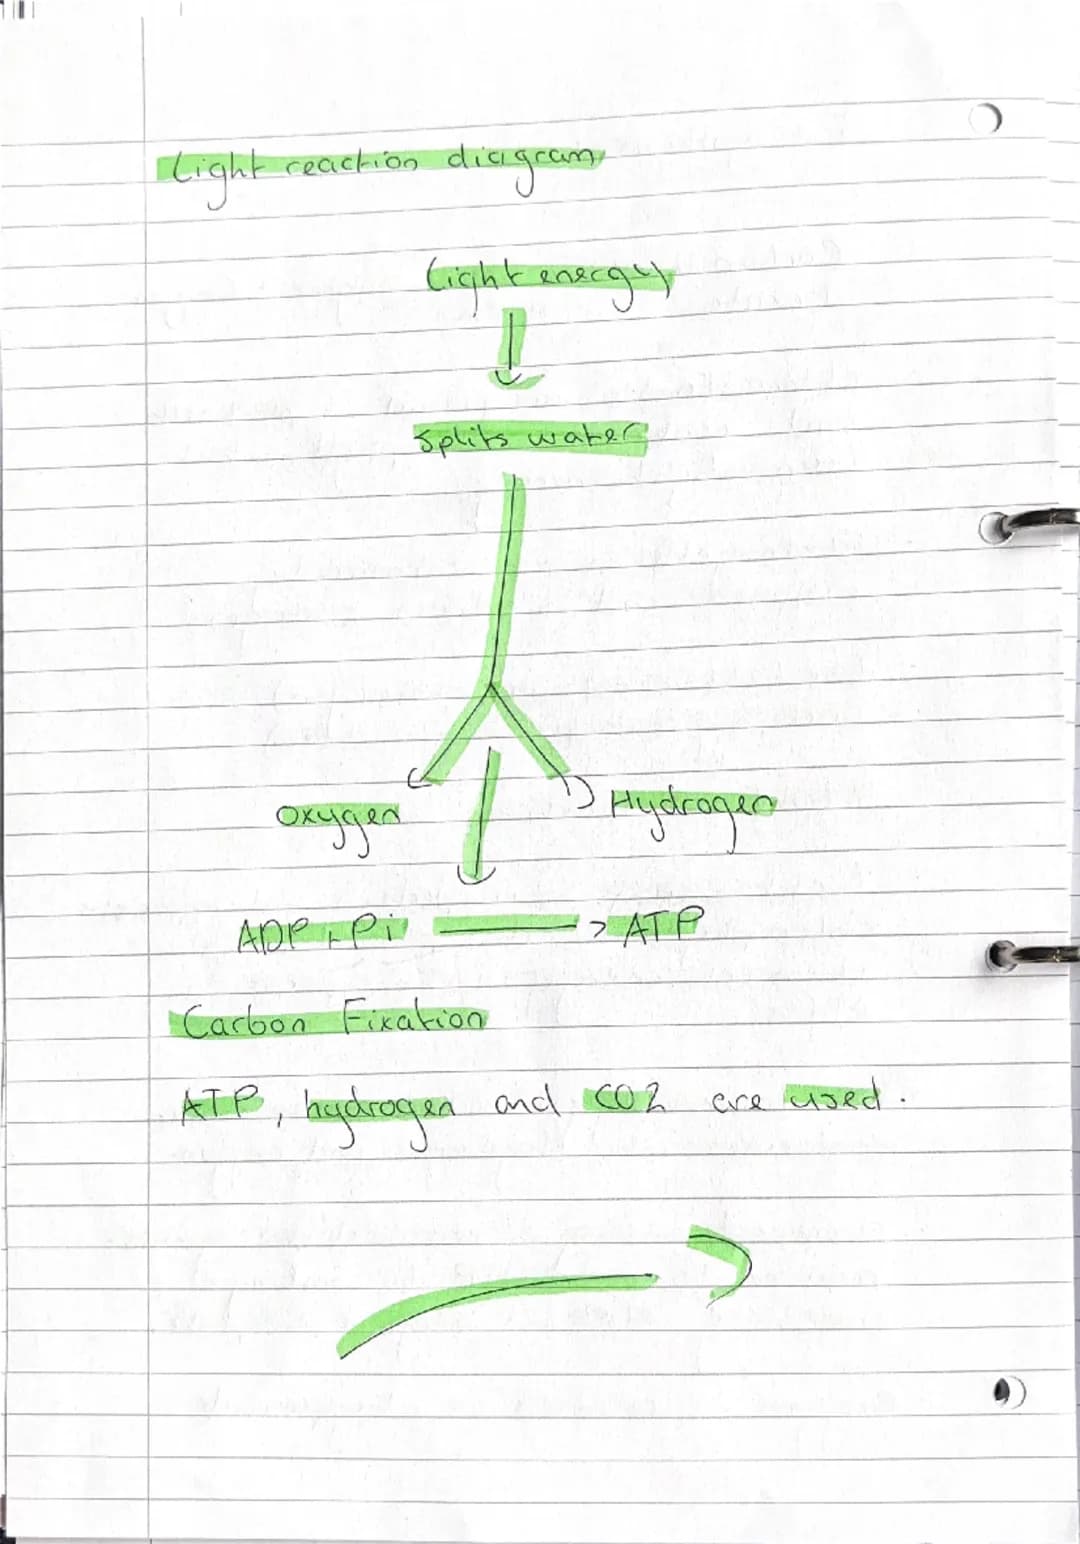 Light reaction diagram
Light energy
Splits water
Oxygen Hydrogen
ADP + Pi > ATP
Carbon Fixation
ATP, hydrogen and CO2 are used.